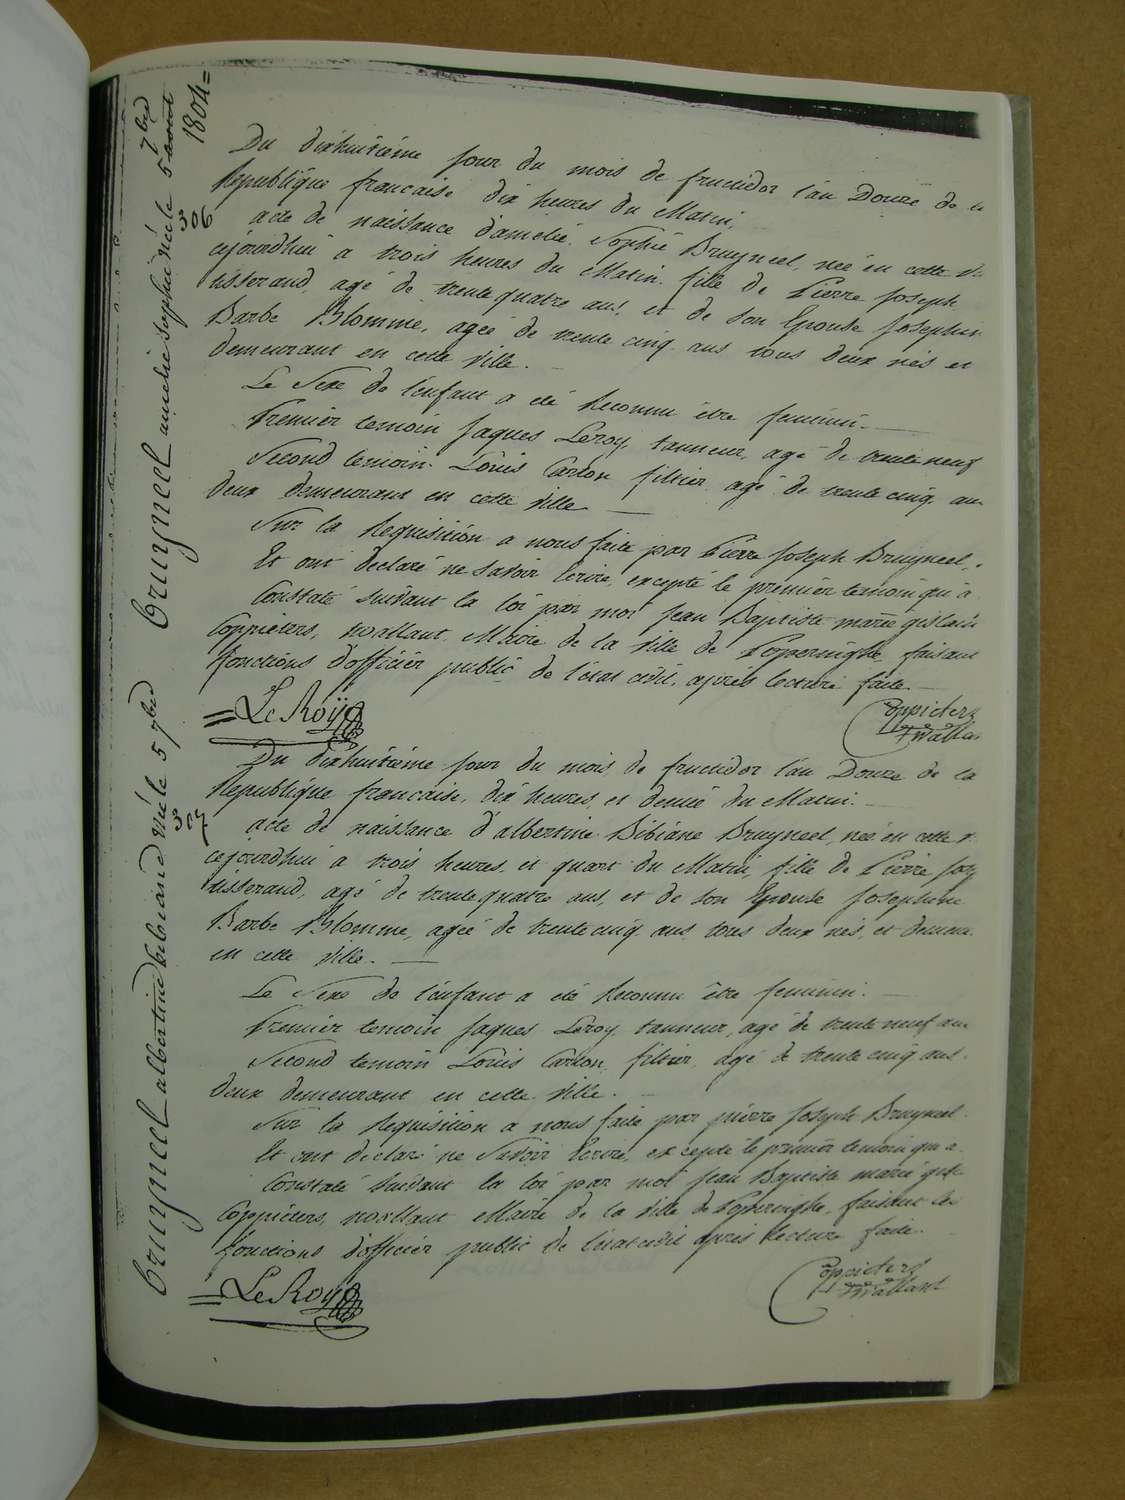 1804=
bruyneel amelie sophie née le 5 aout 7bre
306
Du dixhuitième jour du mois de fructidor l'an Douze de la
Republique francaise dix heures du Matin.
acte de naissance d'amelie Sophie Bruyneel, née en cette
cejourdhui a trois heures du Matin. fille de Pierre Joseph
tisserand, agé de trente quatre ans, et de son Epouse Josephin
Barbe Blomme, agée de trente cinq ans tous deux nés et
demeurant en cette ville.
Le Sexe de l'enfant a été Reconnu être feminin.
Premier temoin Jaques Leroy, tanneur, agé de trente neuf
Second temoin Louis Carton filtier, agé de trente cinq an
deux demeurant en cette ville
Sur la Requisition a nous faite par Pierre Joseph Bruyneel,
Et ont declaré ne Savoir Ecrire, excepté le premier temoin qui a
Constaté Suivant la loi par moi Jean Baptiste marie gislain
Coppieters, wallant, Maire de la ville de Poperinghe faisant
fonctions d'officier public de l'état civil, après lecture faite.
=Le Roÿ
Coppieters
twallan
bruyneel albertine bibiane née le 5 7bre
307
Du dixhuitième jour du mois de fructidor l'an Douze de la
Republique francaise, dix heures, et demie du Matin.
acte de naissance d'albertine Bibiane Bruyneel, née en cette v
cejourdhui a trois heures, et quart du Matin, fille de Pierre Jos
tisserand, agé de trente quatre ans, et de son Epouse Josephine
Barbe Blomme, agée de trente cinq ans, tous deux nés, et demeura
en cette ville.
Le Sexe de l'enfant a été Reconnu être feminin.
Premier temoin Jaques Leroy, tanneur, agé de trente neuf ans
Second temoin Louis Carton, filtier, agé de trente cinq ans.
Deux demeurant en cette ville.
Sur la Requisition a nous faite par pierre Joseph Bruyneel.
Et ont declaré ne Savoir Ecrire, excepté le premier temoin qui a
Constaté Suivant la loi par moi Jean Baptiste marie gisl
Coppieters, wallant Maire de la ville de Poperinghe, faisant les
fonctions d'officier public de l'état civil après lecture faite.
=Le Roÿ
Coppieters
twallant